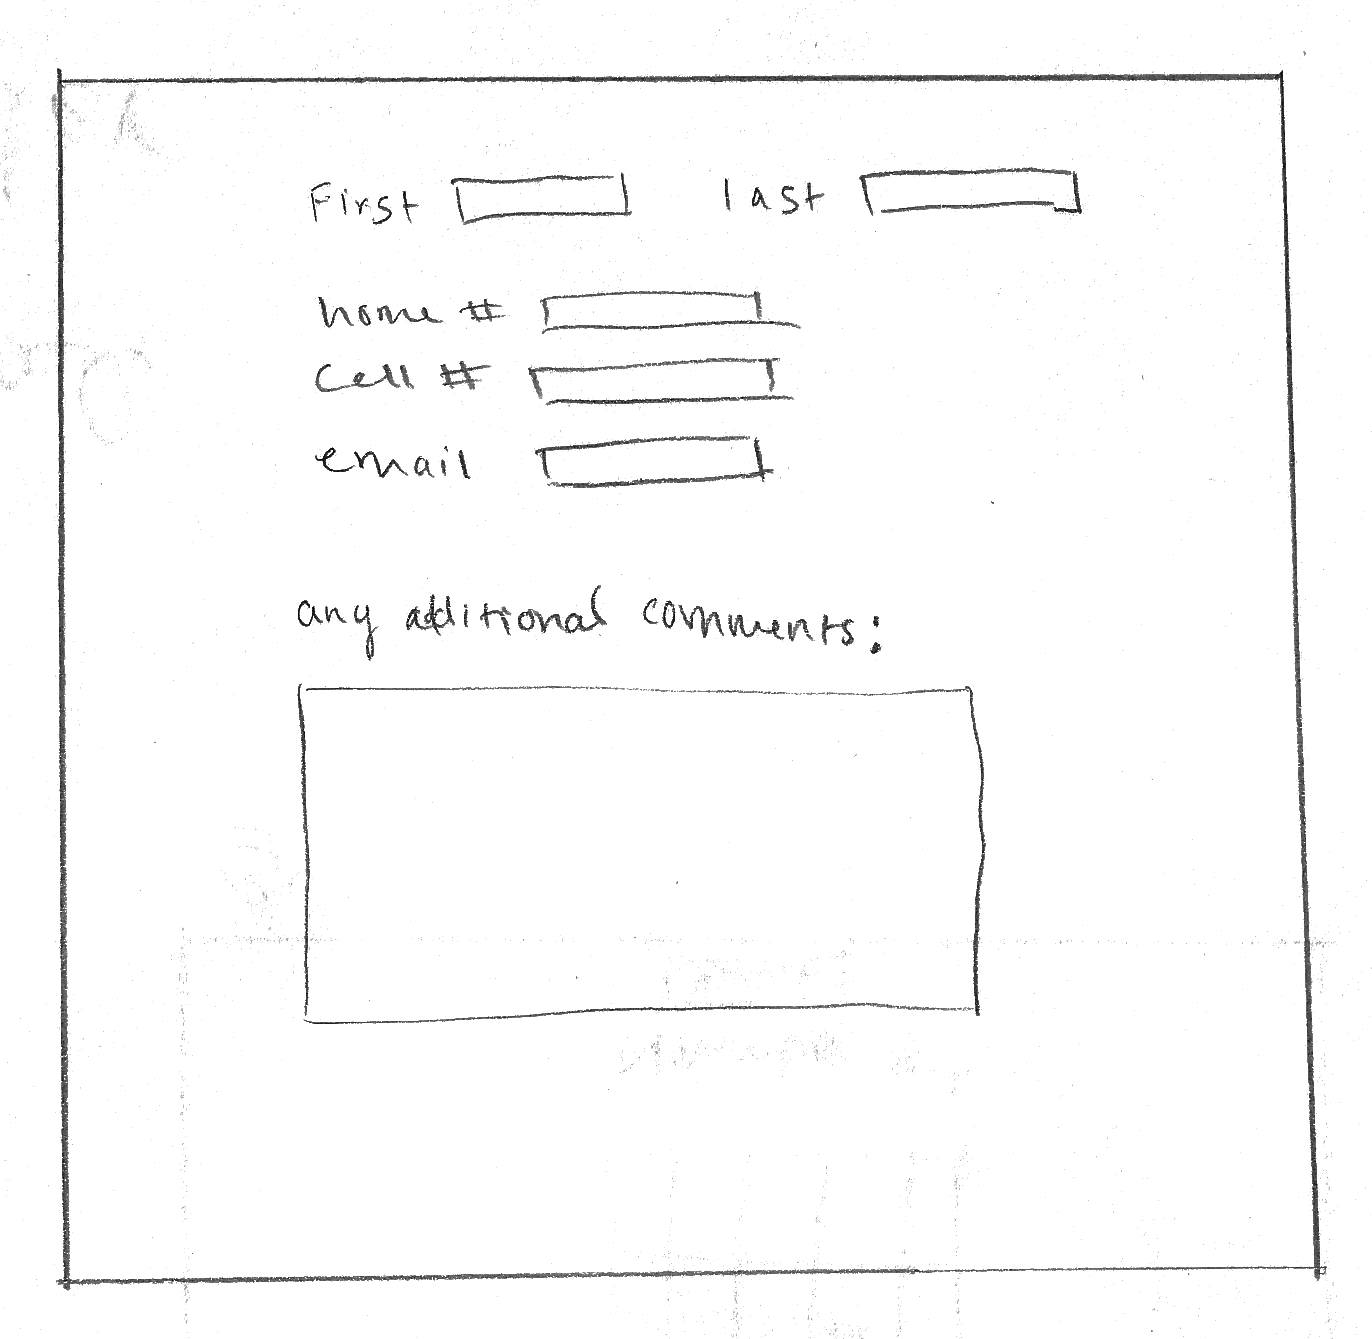 First last
home #
Cell #
email
any additional comments: